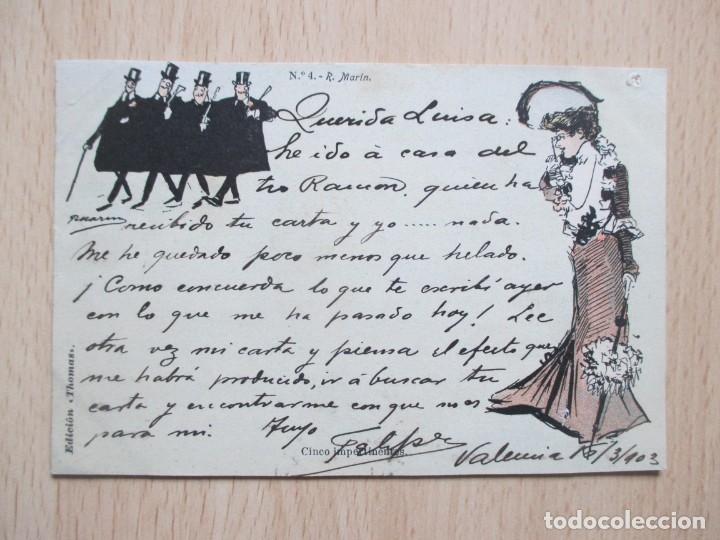 N.º 4. - R. Marín.
Querida Luisa:
he ido á casa del
tío Ramón, quien ha
R. MARIN
recibido tu carta y yo ..... nada.
Me he quedado poco menos que helado.
¡Como concuerda lo que te escribí ayer
con lo que me ha pasado hoy! Lee
otra vez mi carta y piensa el efecto que
me habrá producido, ir á buscar tu
carta y encontrarme con que no es
para mi. Tuyo
Felipe
Cinco impertinentes.
Valencia /3/903
Edición «Thomas».
todocoleccion
todocoleccion.net